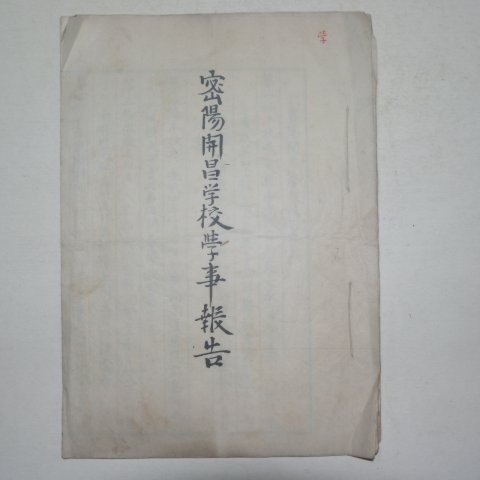 学
密陽開昌学校学事報告